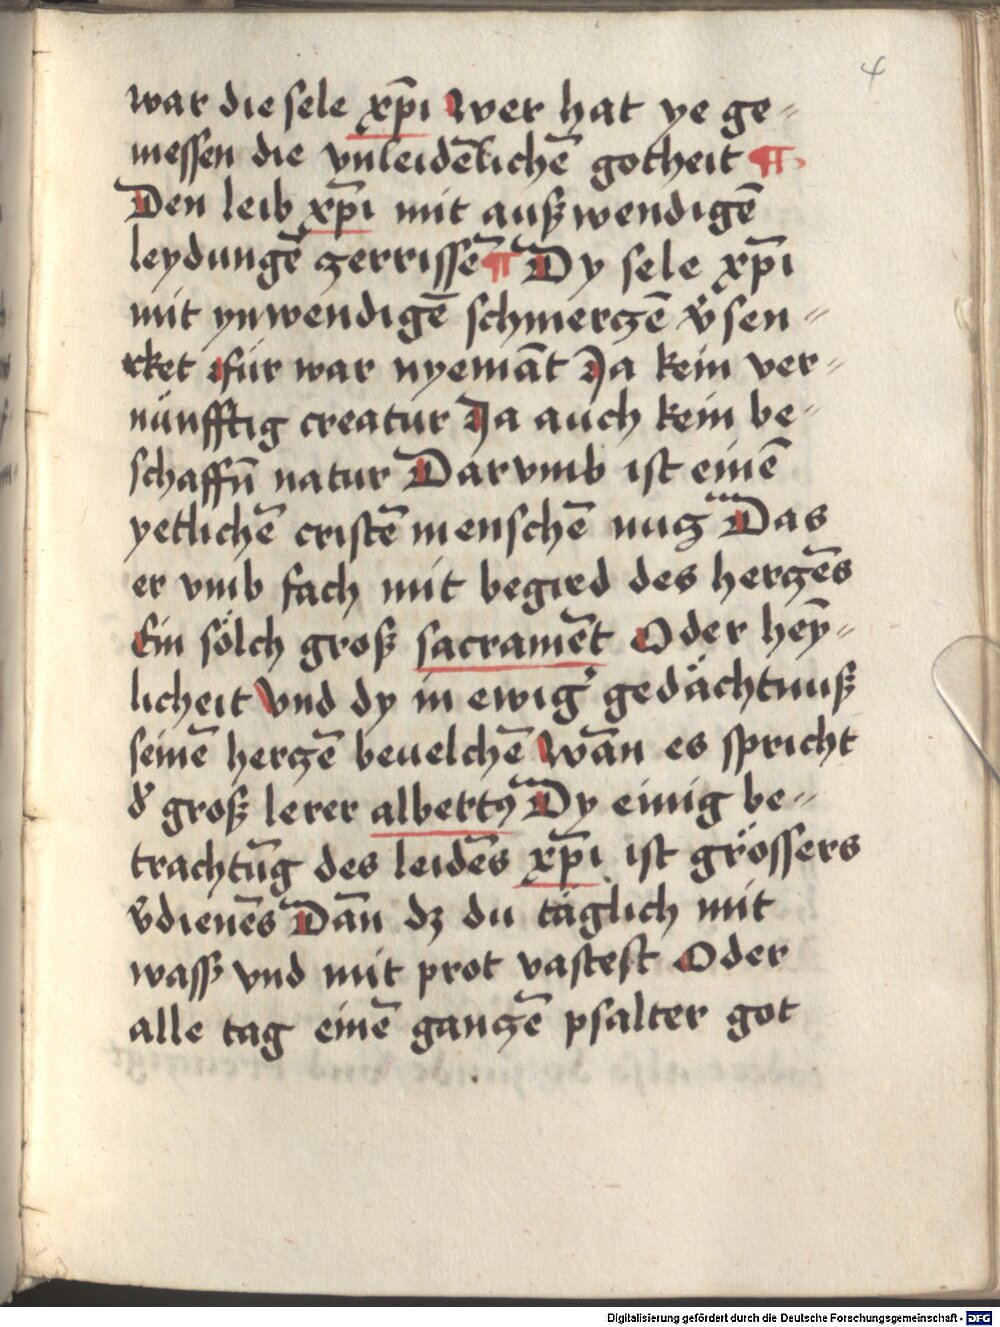 4
war die sele xp̄i Wer hat ye ge⸗
messen die vnleidēlichē gotheit ¶
Den leib xp̄i mit außwendigē
leydungē zerrissē ¶ Dy sele xp̄i
mit ynwendigē schmerczē v̄sen⸗
cket für war nyemāt Ja kein ver⸗
nünfftig creatur Ja auch kein be⸗
schaffn̄ natur Darvmb ist einē
yetlichē cristē menschē nucz Das
er vmb fach mit begird des herczēs
Ein sölch groß sacramēt Oder hēy⸗
licheit Vnd dy in ewig᷑ gedächtnuß
seinē herczē beuelchē Wān es spricht
d᷑ groß lerer albertꝯ Dy einig be⸗
trachtūg des leidēs xp̄i ist grössers
v̄dienēs Dān dz du täglich mit
wass᷑ vnd mit prot vastest Oder
alle tag einē ganczē psalter got
Digitalisierung gefördert durch die Deutsche Forschungsgemeinschaft - DFG